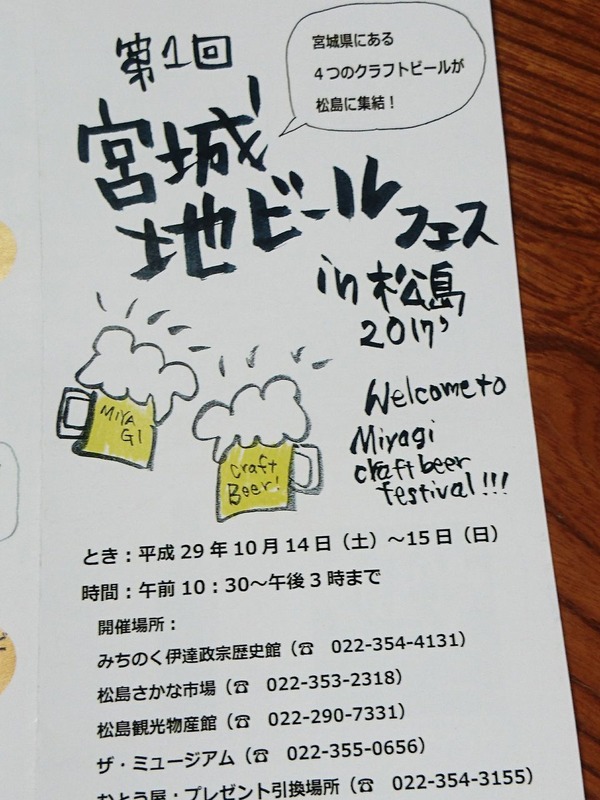 第1回
宮城県にある
4つのクラフトビールが
松島に集結！
宮城
地ビールフェス
in 松島
2017'
MIYA
GI
Craft
Beer!
Welcome to
Miyagi
craft beer
festival!!!
とき：平成 29 年 10 月 14 日（土）～15 日（日）
時間：午前 10：30～午後 3 時まで
開催場所：
みちのく伊達政宗歴史館（☎ 022-354-4131）
松島さかな市場（☎ 022-353-2318）
松島観光物産館（☎ 022-290-7331）
ザ・ミュージアム（☎ 022-355-0656）
むとう屋・プレゼント引換場所（☎ 022-354-3155）